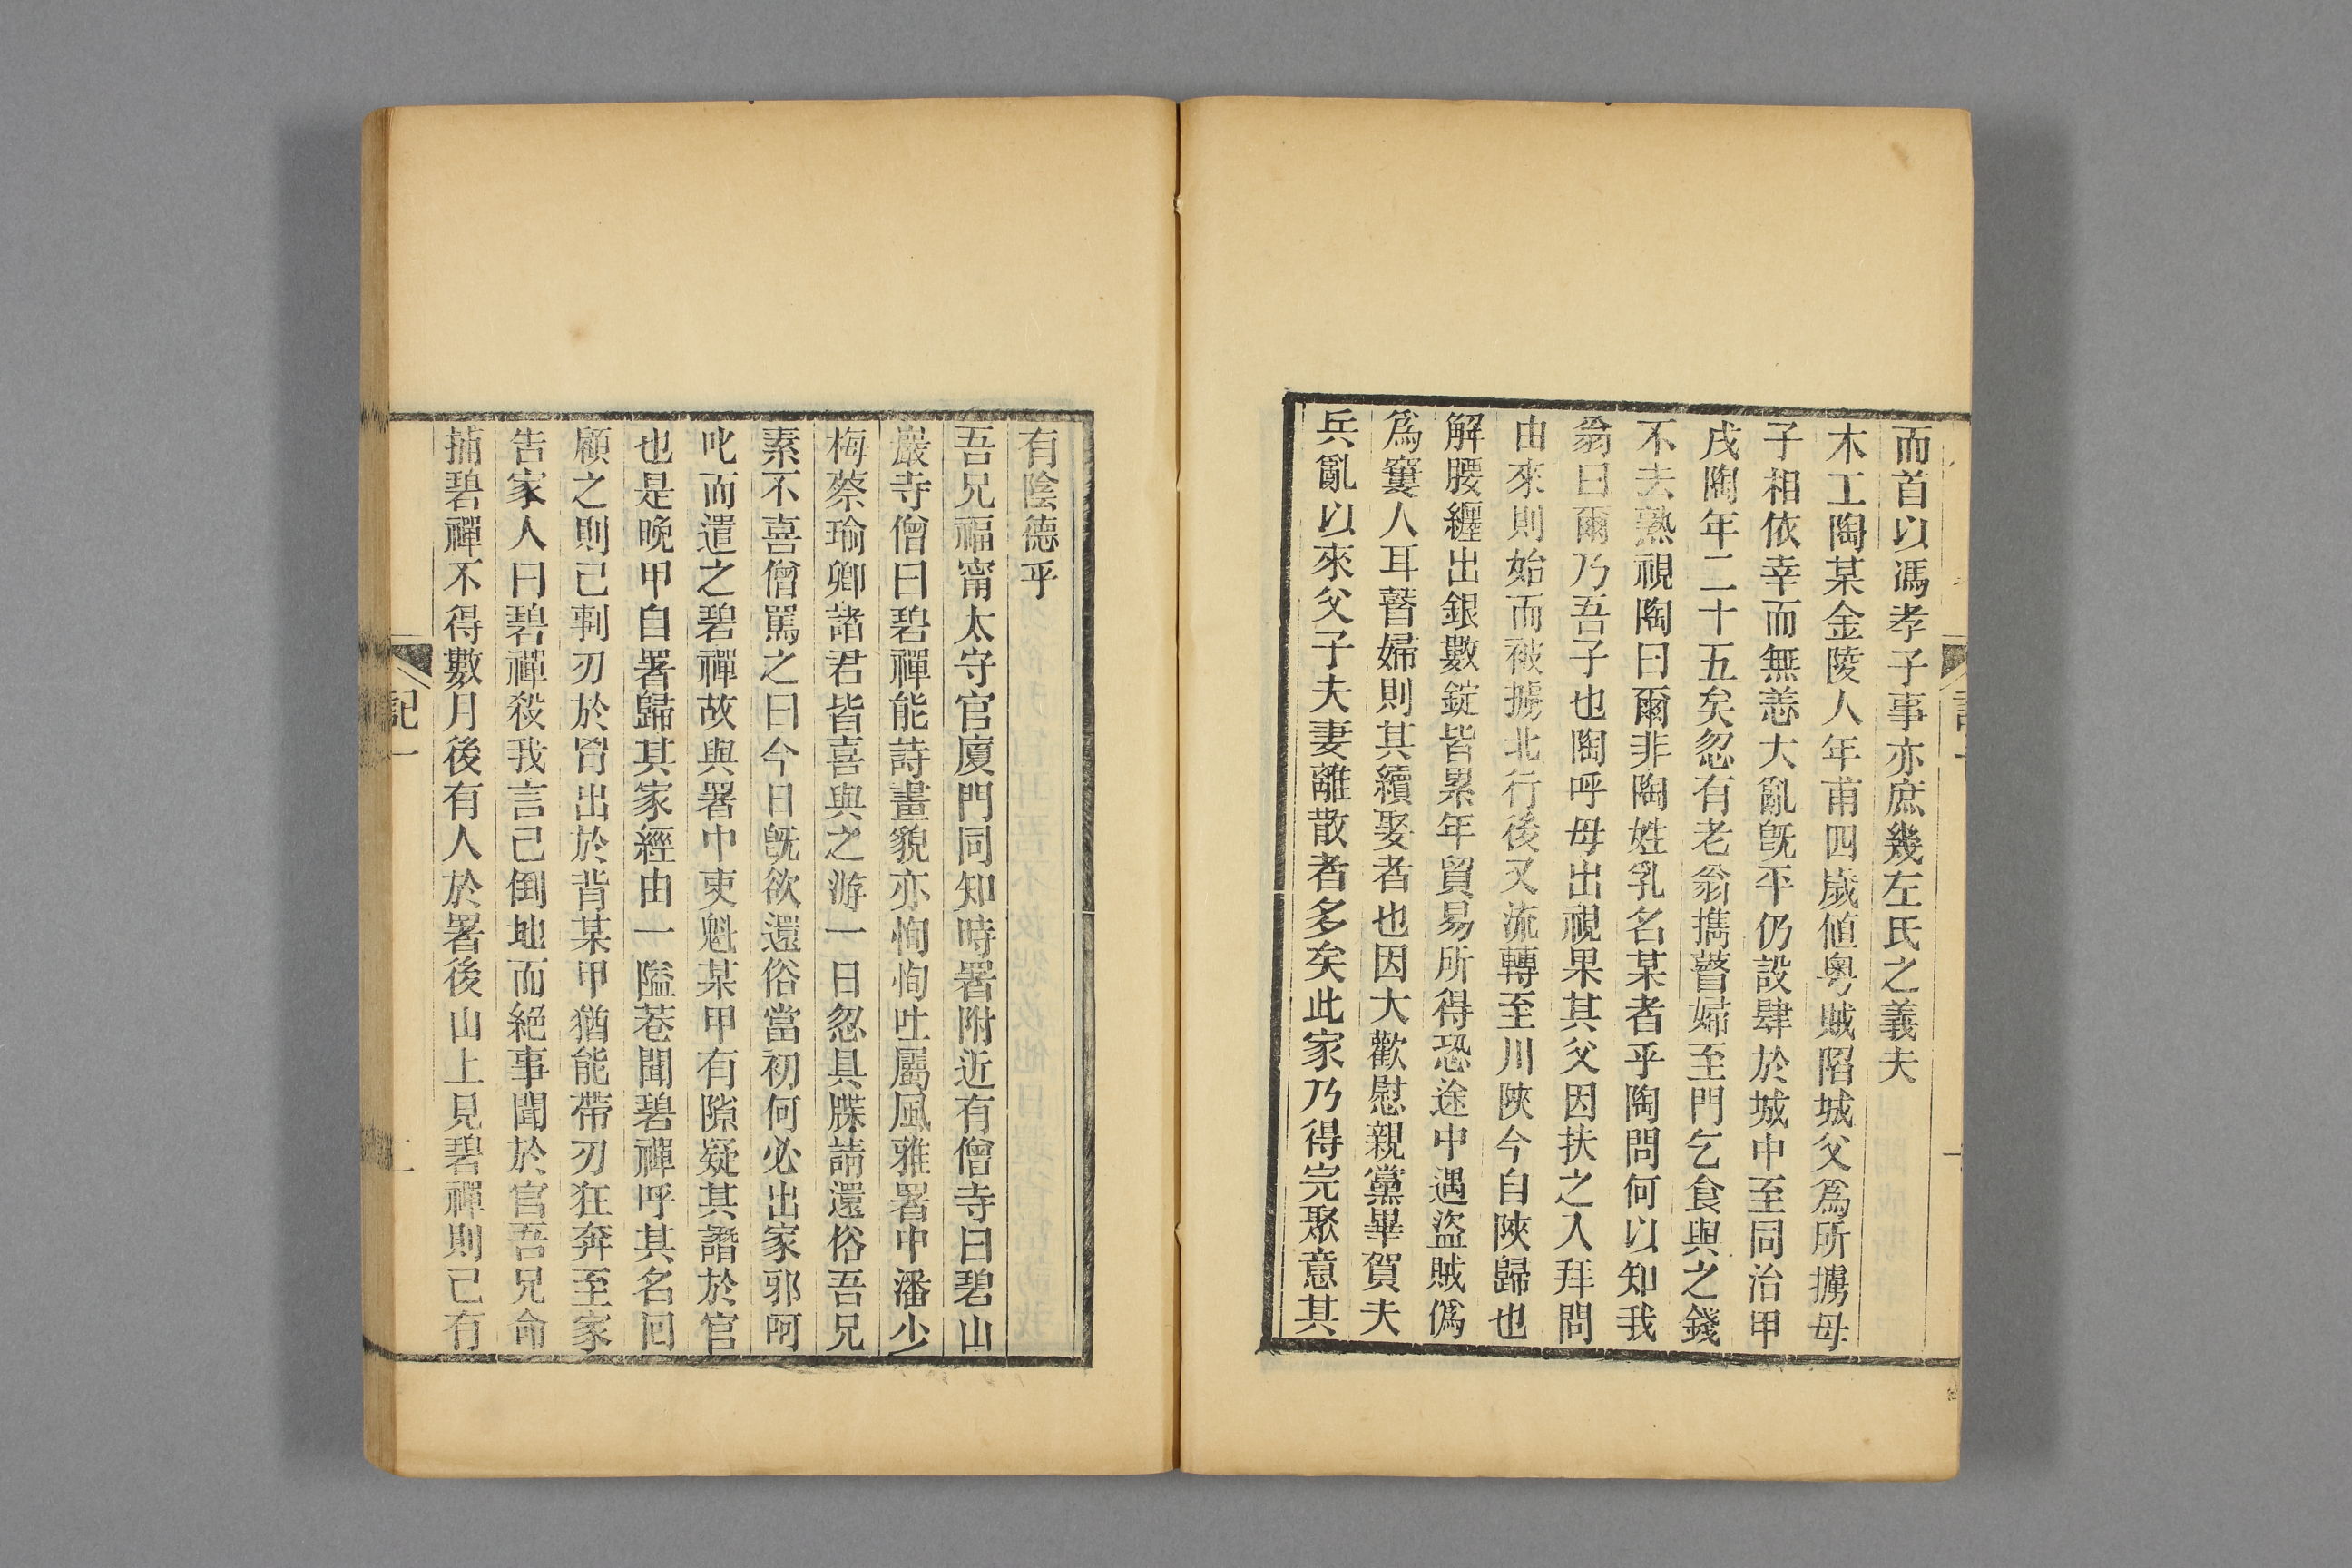 而首以馮孝子事亦庶幾左氏之義夫
木工陶某金陵人年甫四歲値粤賊陷城父爲所擄母
子相依幸而無恙大亂旣平仍設肆於城中至同治甲
戌陶年二十五矣忽有老翁攜瞽婦至門乞食與之錢
不去熟視陶曰爾非陶姓乳名某者乎陶問何以知我
翁曰爾乃吾子也陶呼母出視果其父因扶之入拜問
由來則始而被擄北行後又流轉至川陝今自陝歸也
解腰纏出銀數錠皆累年貿易所得恐途中遇盜賊僞
爲窶人耳瞽婦則其續娶者也因大歡慰親黨畢賀夫
兵亂以來父子夫妻離散者多矣此家乃得完聚意其
有陰德乎
吾兄福甯太守官廈門同知時署附近有僧寺曰碧山
巖寺僧曰碧禪能詩畫貌亦恂恂吐屬風雅署中潘少
梅蔡瑜卿諸君皆喜與之游一日忽具牒請還俗吾兄
素不喜僧罵之曰今日旣欲還俗當初何必出家邪呵
叱而遣之碧禪故與署中吏魁某甲有隙疑其譖於官
也是晚甲自署歸其家經由一隘巷聞碧禪呼其名回
顧之則已剚刃於胷出於背某甲猶能帶刃狂奔至家
告家人曰碧禪殺我言已倒地而絕事聞於官吾兄命
捕碧禪不得數月後有人於署後山上見碧禪則已有
記一
二